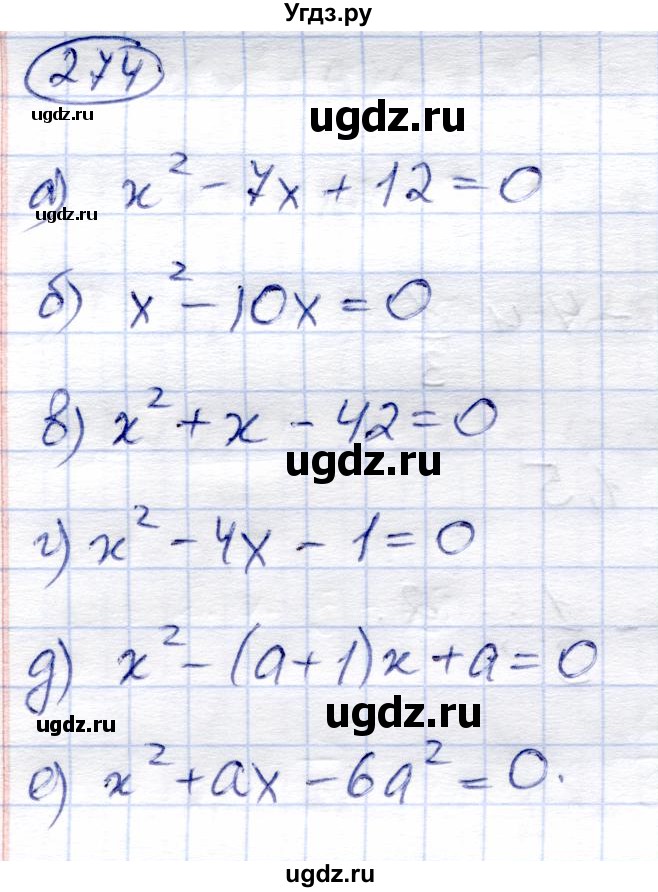 Угдз.ру
274
ugdz.ru
ugdz.ru
а) x² - 7x + 12 = 0
ugdz.ru
б) x² - 10x = 0
в) x² + x - 42 = 0
ugdz.ru
г) x² - 4x - 1 = 0
д) x² - (a + 1)x + a = 0
ugdz.ru
ugdz.ru
е) x² + ax - 6a² = 0.
ugdz.ru